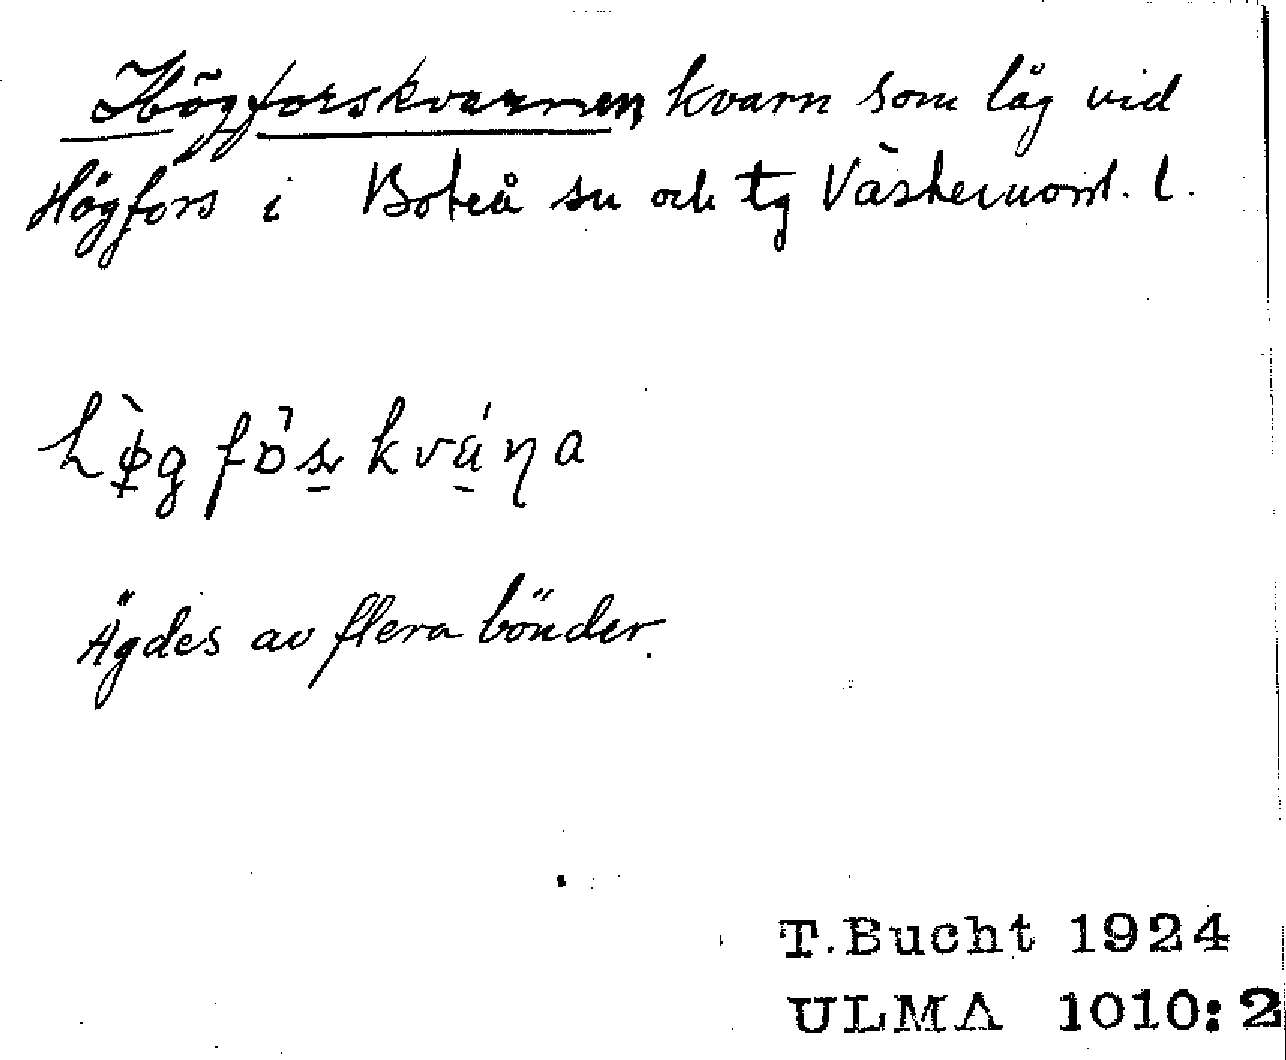 Högforskvarnen kvarn som låg vid
Högfors i Boteå sn och tg Västernorrl. l.
Ägdes av flera bönder.
T.Bucht 1924
ULMA 1010:2